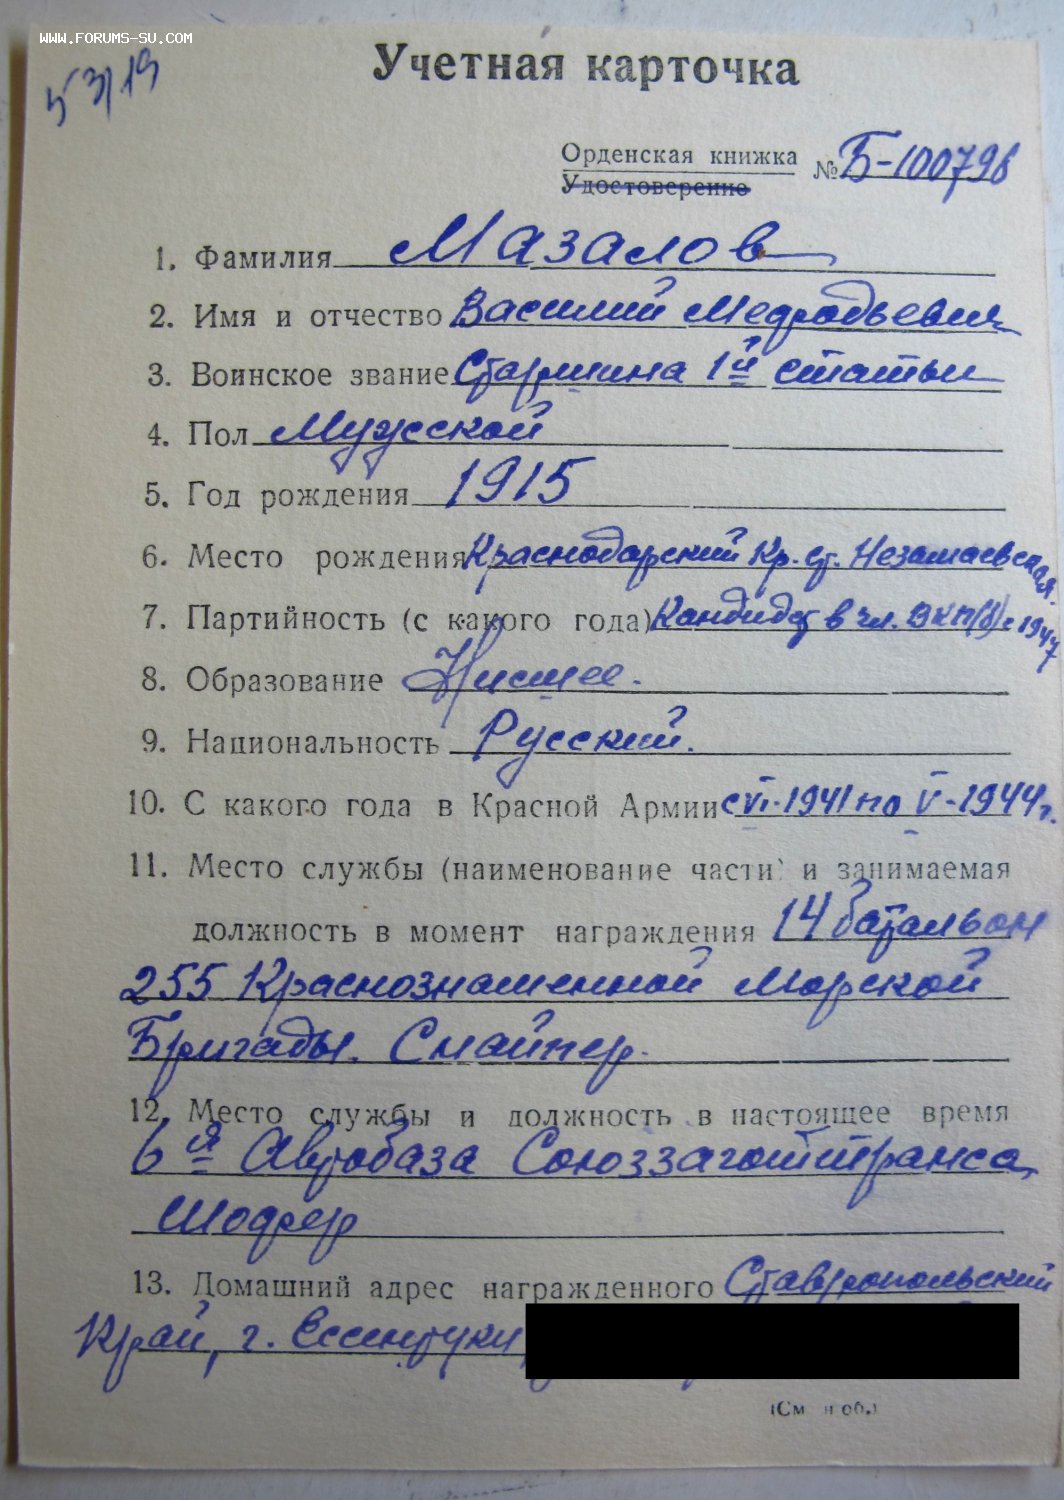 www.forums-su.com
53/19
Учетная карточка
Орденская книжка
Удостоверение
№ Б-100798
1. Фамилия Мазалов
2. Имя и отчество Василий Мефодьевич
3. Воинское звание Старшина 1й статьи
4. Пол Мужской
5. Год рождения 1915
6. Место рождения Краснодарский Кр. ст. Незамаевская.
7. Партийность (с какого года) Кандидат в чл. ВКП(б) с 1947
8. Образование Низшее.
9. Национальность Русский.
10. С какого года в Красной Армии с VI-1941 по V-1944г.
11. Место службы (наименование части) и занимаемая
должность в момент награждения 14 батальон
255 Краснознаменной Морской
Бригады. Снайпер.
12. Место службы и должность в настоящее время
6я Автобаза Союззаготтранса,
Шофер
13. Домашний адрес награжденного Ставропольский
Край, г. Ессентуки,
(См н об.)